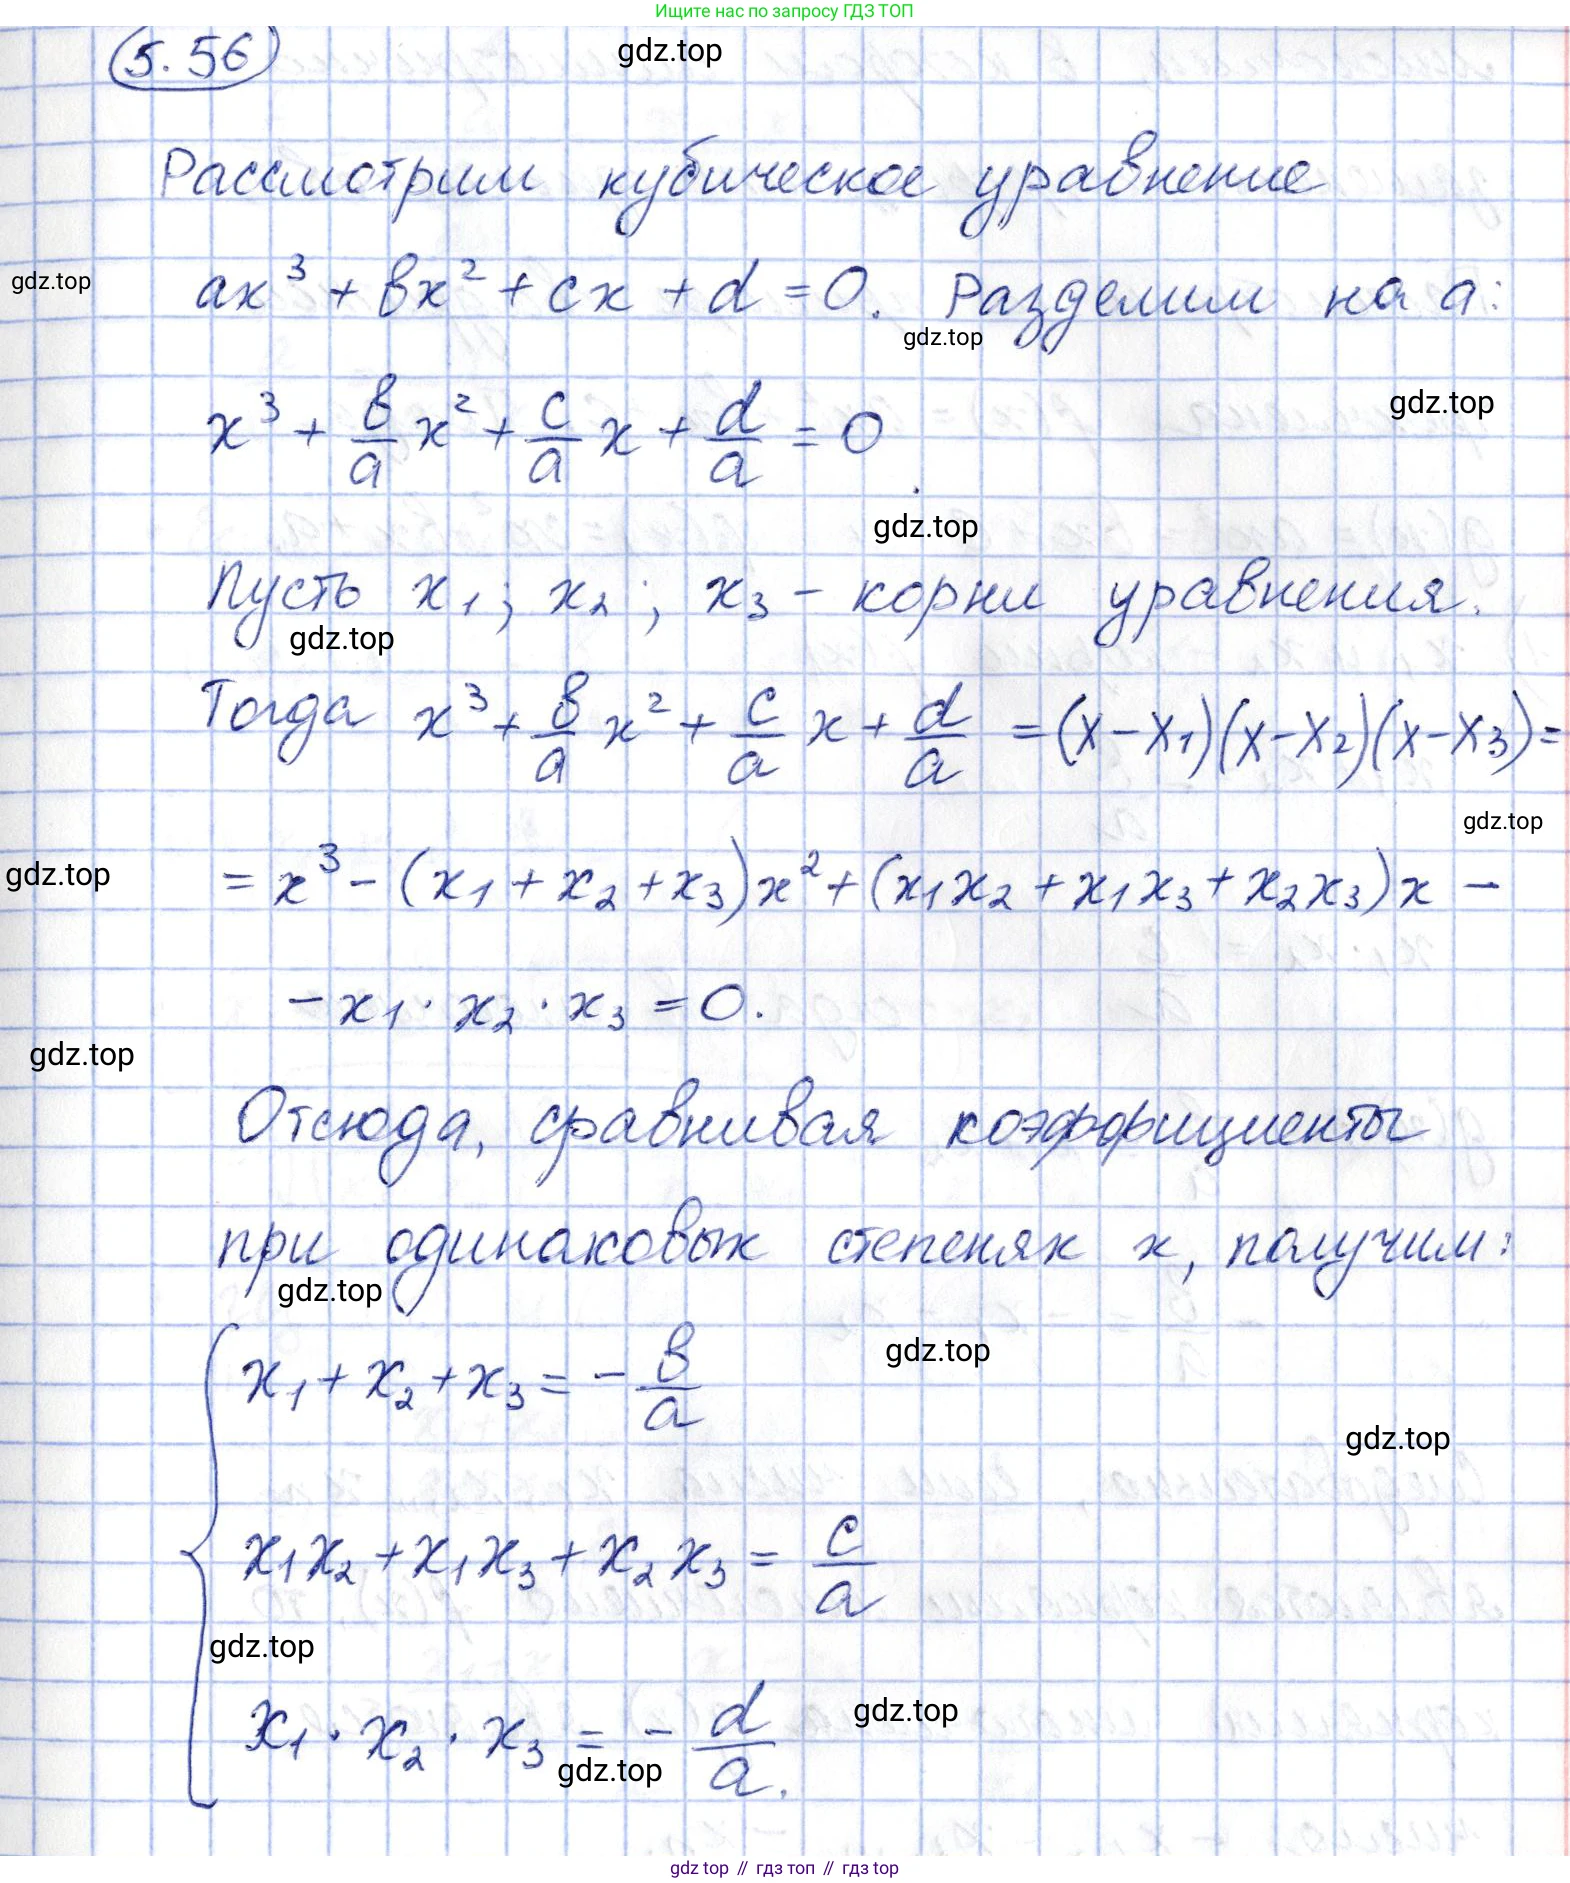 Ищите нас по запросу ГДЗ ТОП
5.56
gdz.top
Рассмотрим кубическое уравнение
gdz.top
ax³ + bx² + cx + d = 0. Разделим на a:
gdz.top
gdz.top
x³ + b/a x² + c/a x + d/a = 0
gdz.top
Пусть x₁; x₂; x₃ - корни уравнения.
gdz.top
Тогда x³ + b/a x² + c/a x + d/a = (x-x₁)(x-x₂)(x-x₃) =
gdz.top
gdz.top
= x³ - (x₁ + x₂ + x₃)x² + (x₁x₂ + x₁x₃ + x₂x₃)x -
- x₁ · x₂ · x₃ = 0.
gdz.top
Отсюда, сравнивая коэффициенты
при одинаковых степенях x, получим:
gdz.top
gdz.top
{ x₁ + x₂ + x₃ = - b/a
gdz.top
x₁x₂ + x₁x₃ + x₂x₃ = c/a
gdz.top
gdz.top
x₁ · x₂ · x₃ = - d/a.
gdz.top
gdz top // гдз топ // гдз top